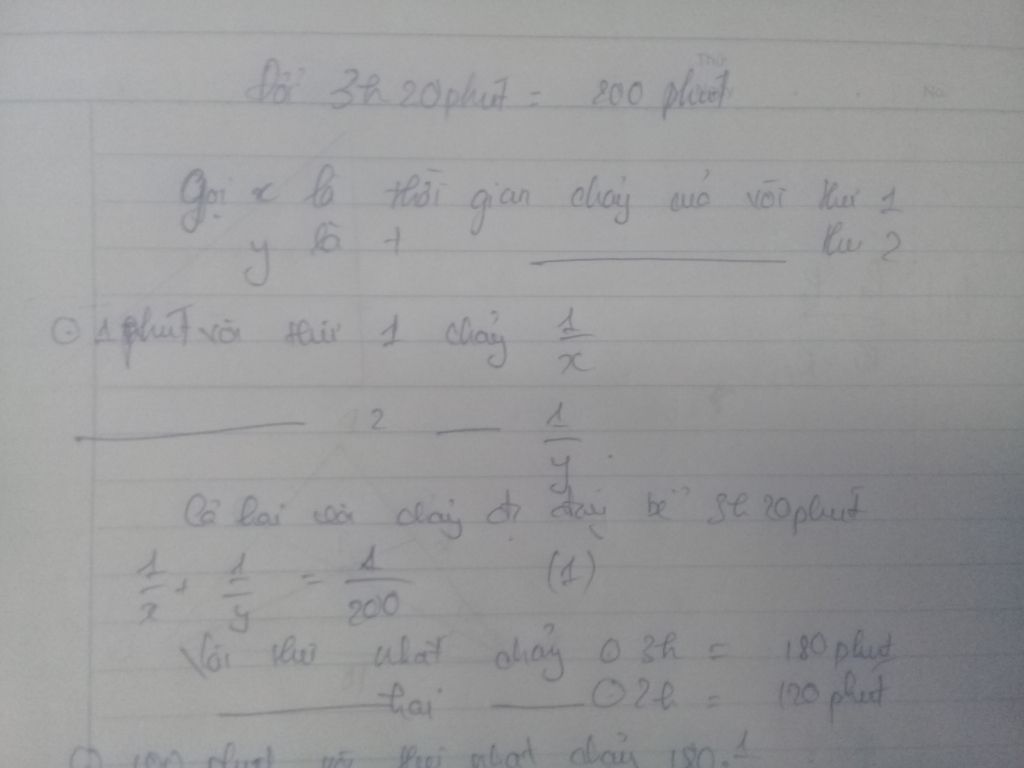 Đổi 3h 20 phút = 200 phút
Gọi x là thời gian chảy của vòi thứ 1
y là t thứ 2
1 phút vòi thứ 1 chảy 1/x
2 1/y
Cả hai vòi chảy đầy bể 3h 20 phút
1/x + 1/y = 1/200 (1)
Vòi thứ nhất chảy 3h = 180 phút
hai 2h = 120 phút
phút vòi thứ nhất chảy 180.1